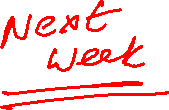 Next
Week